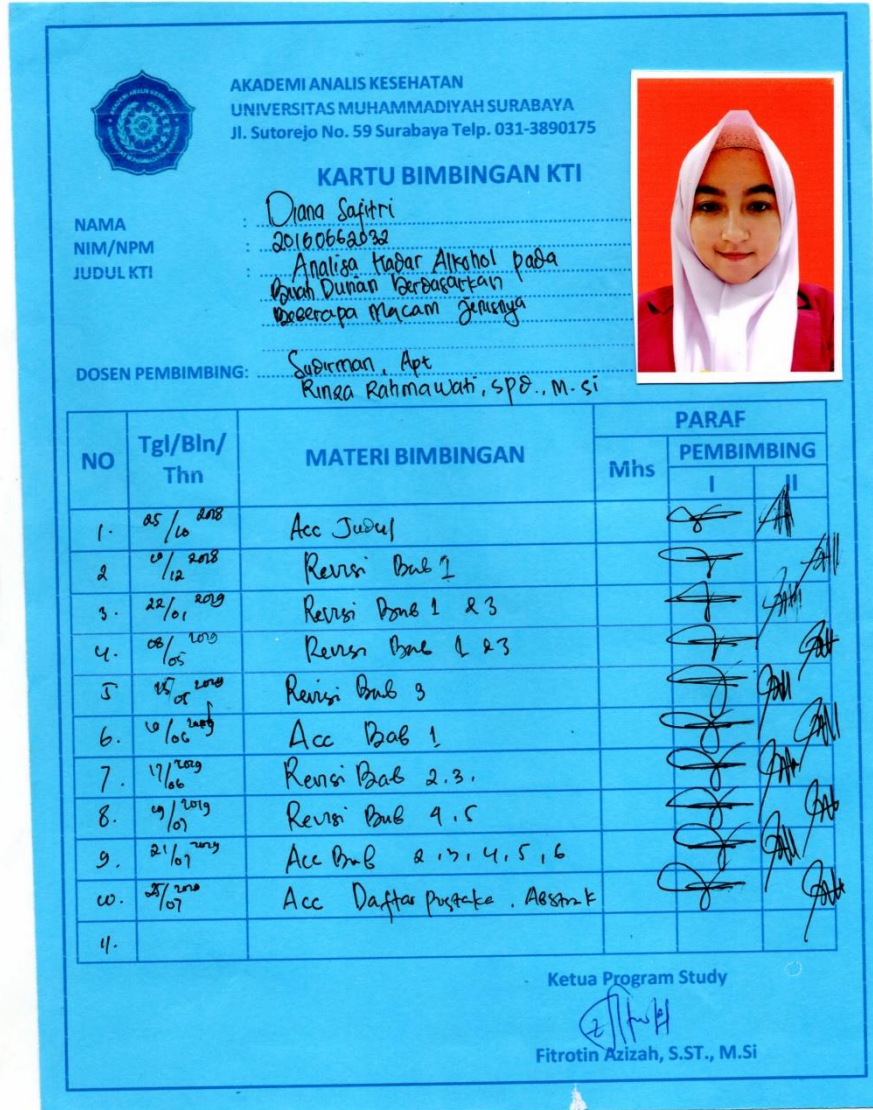 AKADEMI ANALIS KESEHATAN
UNIVERSITAS MUHAMMADIYAH SURABAYA
Jl. Sutorejo No. 59 Surabaya Telp. 031-3890175
KARTU BIMBINGAN KTI
NAMA : Diana Safitri
NIM/NPM : 20160662032
JUDUL KTI : Analisa Kadar Alkohol pada
Buah Durian Berdasarkan
Beberapa Macam Jenisnya
DOSEN PEMBIMBING: Sudirman, Apt
Rinza Rahmawati, spd., M.si
NO Tgl/Bln/Thn MATERI BIMBINGAN PARAF
Mhs PEMBIMBING
I II
1. 25/10 2018 Acc Judul
2 10/12 2018 Revisi Bab 1
3. 22/01 2019 Revisi Bab 1 & 3
4. 08/05 2019 Revisi Bab 1 & 3
5 2019 Revisi Bab 3
6. 10/06 2019 Acc Bab 1
7. 17/06 2019 Revisi Bab 2.3.
8. 2019 Revisi Bab 4.5
9. 21/07 2019 Acc Bab 2, 3, 4, 5, 6
10. 25/07 Acc Daftar pustaka, Abstrak
11.
Ketua Program Study
Fitrotin Azizah, S.ST., M.Si